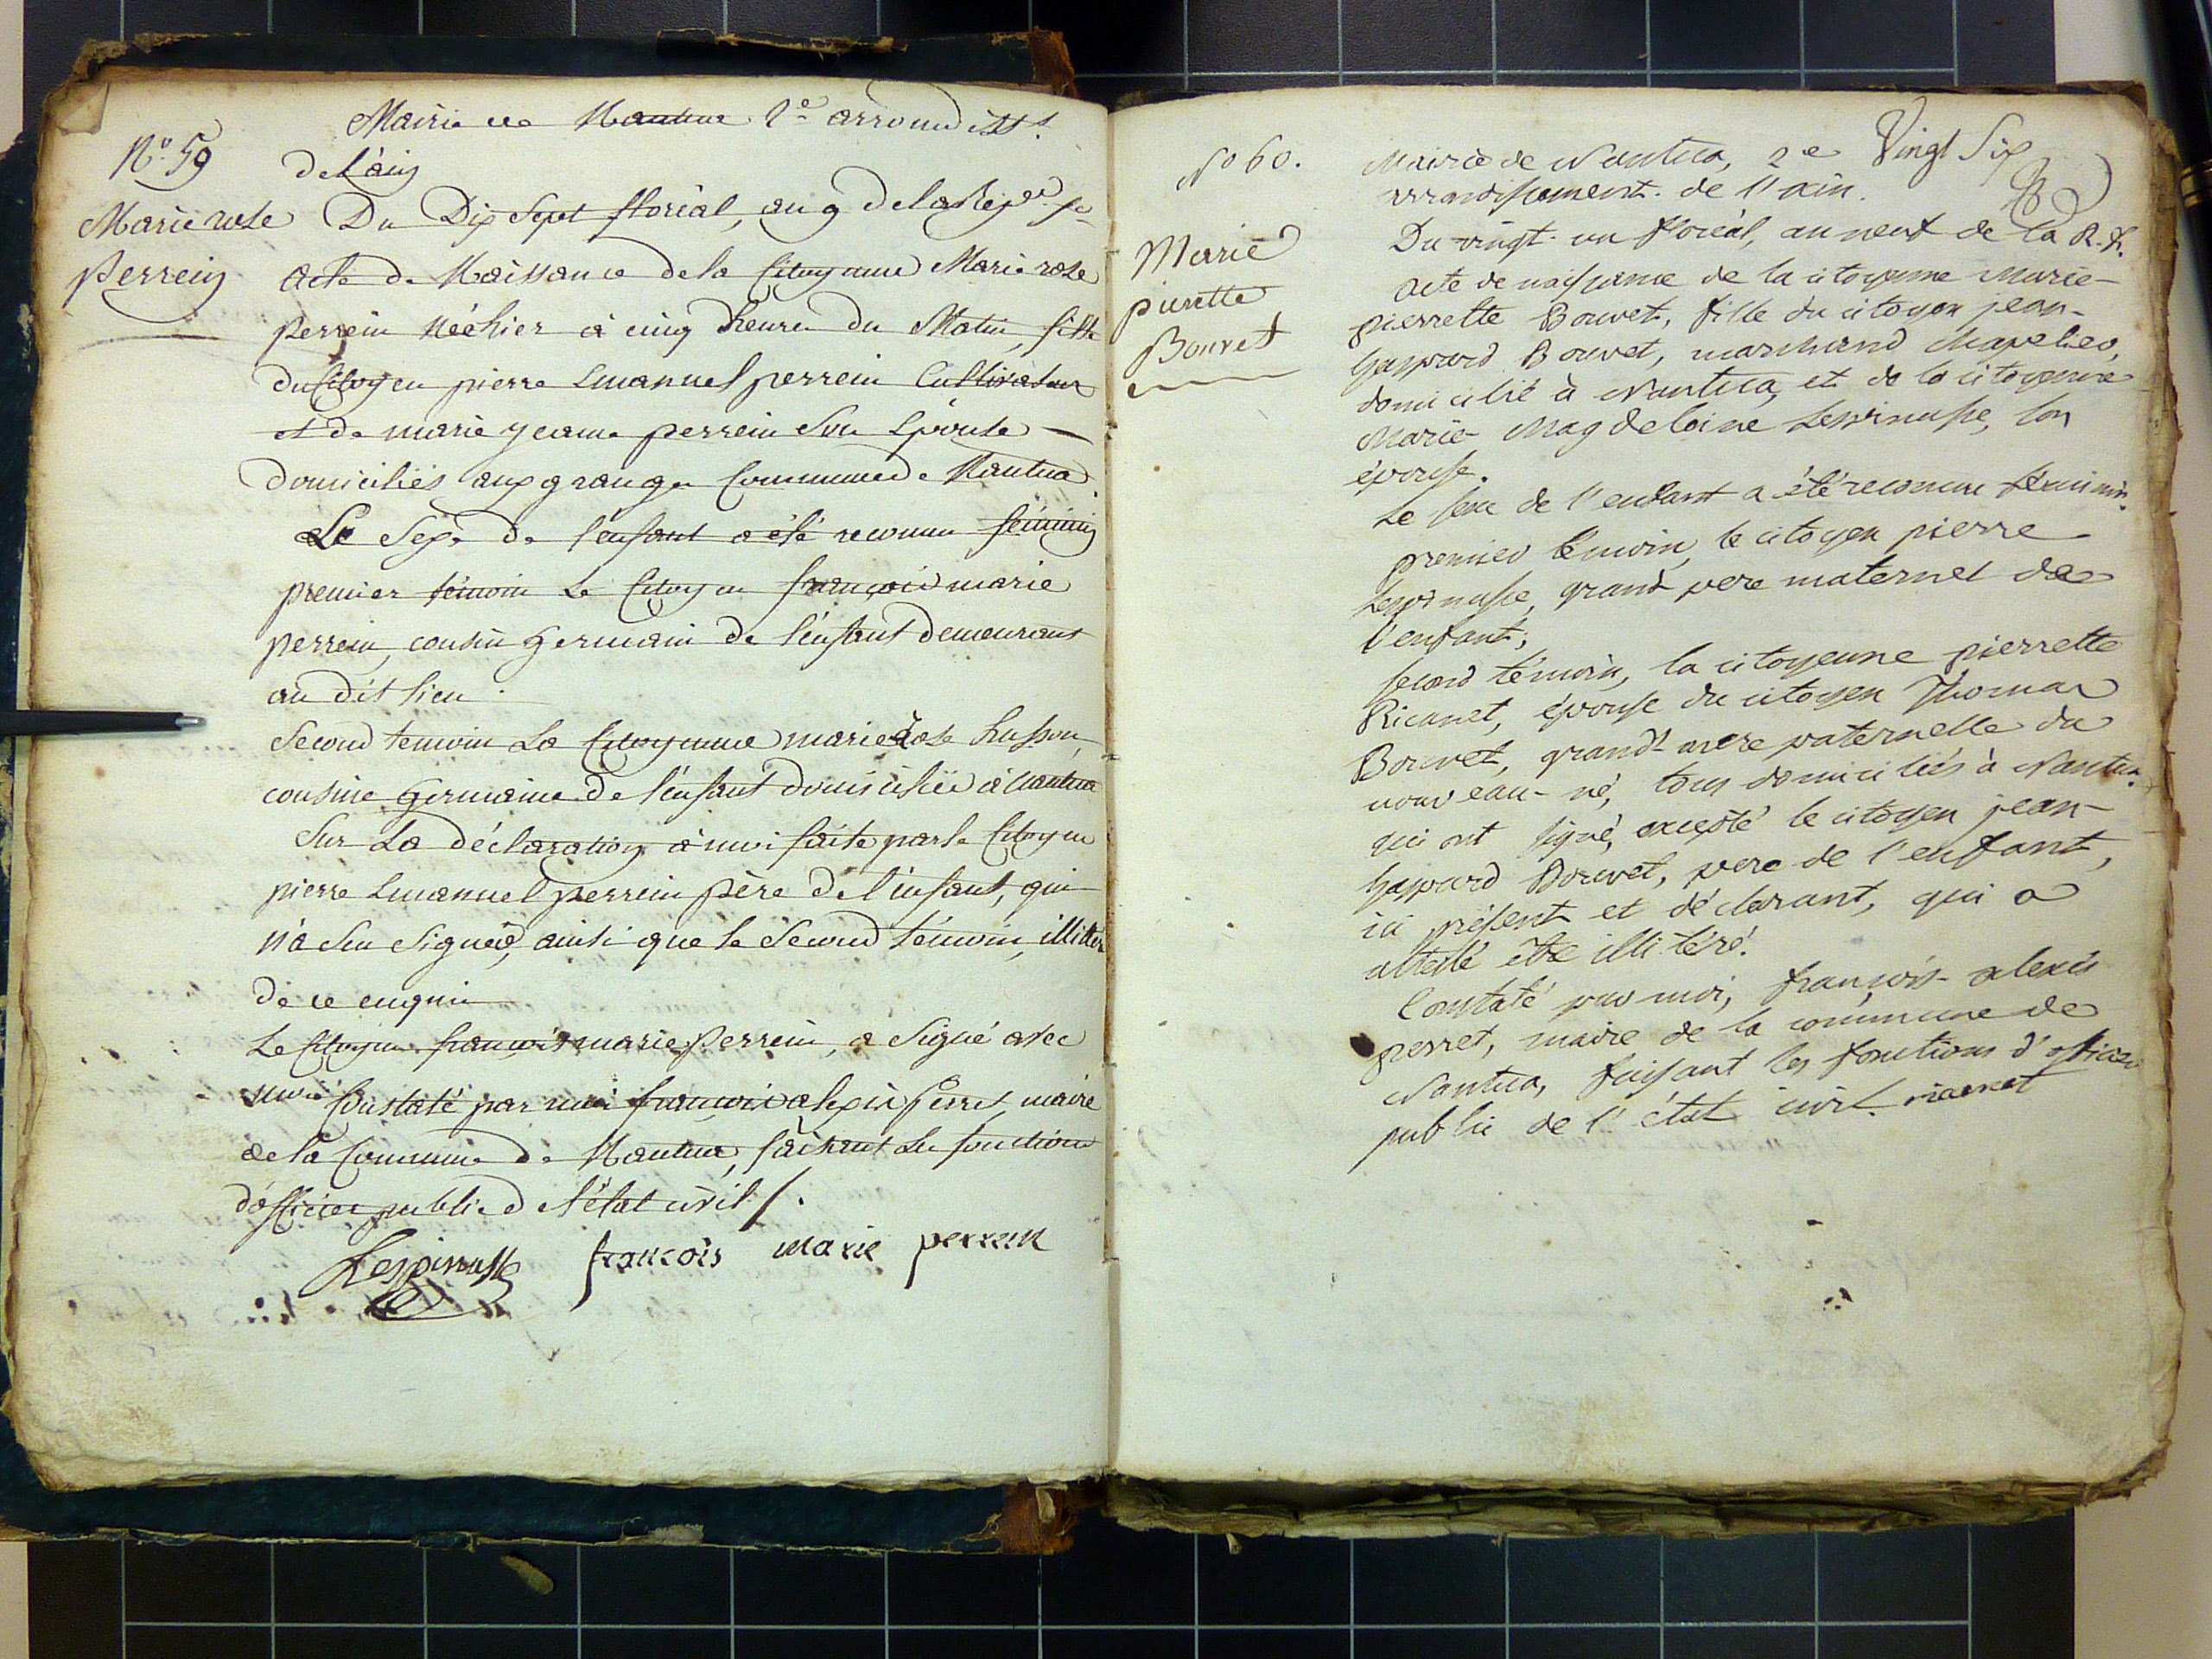 Mairie de Nantua 2e arrondisst.
N.o 59
de l'ain
Marie rose
Perrein
Du Dix Sept floréal, an 9 de la Repe. fe
acte de Naissance de la Citoyenne Marie rose
perrein Née hier à cinq heures du Matin, fille
du Citoyen pierre Emanuel perrein Cultivateur
et de marie jeanne perrein Son Epouse
domiciliés aux granges Commune de Nantua.
Le Sexe de l'enfant a été reconnu féminin
premier témoin Le Citoyen françois marie
perrein, cousin germain de l'enfant demeurant
au dit lieu.
Second temoin La Citoyenne marie Rose husson,
cousine germaine de l'enfant domiciliée à Nantua
Sur La déclaration à moi faite par le Citoyen
pierre Emanuel perrein père de l'enfant, qui
n'a Seu Signer, ainsi que le Second témoin,
de ce enquis
Le Citoyen françois marie Perrein, a Signé avec
moi
Constaté par moi françois alexis Perret, maire
de la Commune de Nantua, faisant Les fonctions
d'officier public de l'état civil /.
Lespinasse françois marie perrein
Vingt Six
No 60.
Mairie de Nantua, 2e
arrondissement de l'ain.
Marie
pierrette
Bouvet
Du vingt-un floréal, an neuf de la R. f.
acte de naissance de la citoyenne marie-
pierrette Bouvet, fille du citoyen jean-
gaspard Bouvet, marchand chapelier,
domicilié à Nantua, et de la citoyenne
Marie Magdeleine Lespinasse, son
épouse.
Le sexe de l'enfant a été reconnu féminin.
premier témoin, le citoyen pierre
Lespinasse, grand pere maternel de
l'enfant;
second témoin, la citoyenne pierrette
Ricanet, épouse du citoyen Thomas
Bouvet, grand mere paternelle du
nouveau-né, tous domiciliés à Nantua.
qui ont signé, excepté le citoyen jean-
gaspard Bouvet, pere de l'enfant,
ici présent et déclarant, qui a
attesté être illitéré.
Constaté par moi, françois-alexis
perret, maire de la commune de
Nantua, faisant les fonctions d'officier
public de l'état civil. ricanet